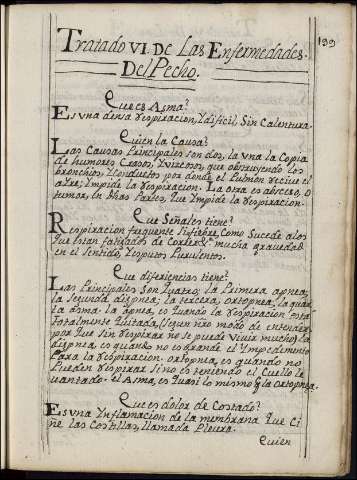 199
Tratado VI. De Las Enfermedades.
Del Pecho.
Que es Asma?
Es una densa respiracion, y dificil, Sin Calentura.
Quien la Causa?
Las Causas Principales son dos, la una la Copia
de humores Crasos, y viscosos, que obstruyendo los
bronchios, y Conductos por donde el Pulmon recive el
aire; impide la respiracion. La otra es abceso, o
tumor, en dhas Partes, que Impide la respiracion.
Que Señales tiene?
Respiracion frequente sin fiebre, Como Sucede a los
que estan fatigados de Correr, mucha gravedad
en el Sentido, y esputos Purulentos.
Que diferiencias tiene?
Las Principales Son quatro; la Primera apnea;
la Segunda dispnea; la tercera, ortopnea; la quar
ta asma. la apnea, es quando la respiracion esta
totalmente quitada, (segun nro modo de entender)
por que Sin respirar no se puede Vivir mucho; la
dispnea es quando no es grande el Impedimento
Para la respiracion. ortopnea, es quando no
Pueden respirar Si no es teniendo el Cuello le
vantado. el Asma, es quasi lo mismo q la ortopnea.
Que es dolor de Costado?
Es una Inflamacion de la membrana que Ci
ñe las Costillas, llamada Pleura.
Quien